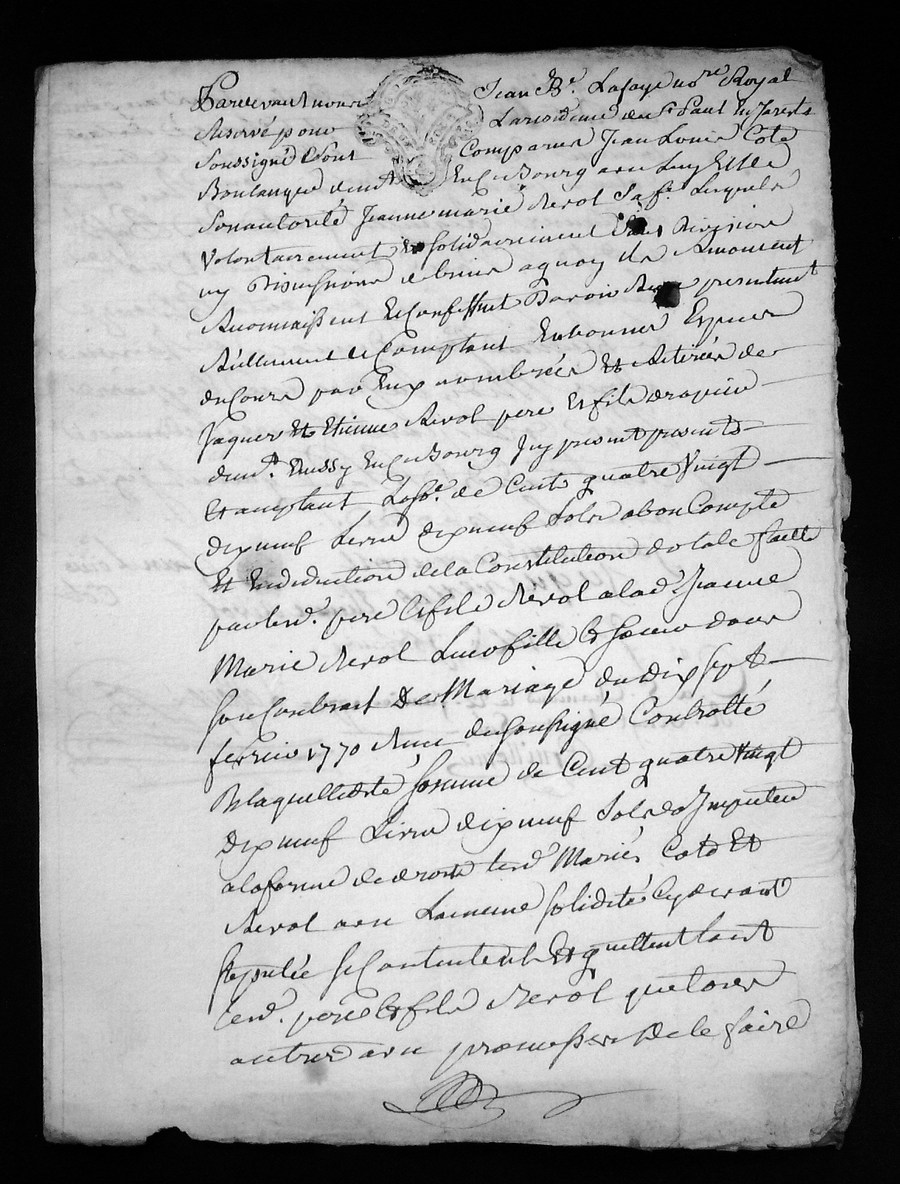 Pardevant nous Jean Bte. Lafaye nore Royal
Reservé pour La residence de St Paul en Jarests
Soussigné Sont Comparus Jean Louis Coté
Boulanger demt En ce Bourg avec luy Et de
Son autorité Jeanne marie Revol Sa fe. Lesquels
volontairement et solidairement Sans Division
ny Discussions de biens a quoy ils Renoncent
Reconnaissent Et Confessent Davoir Reçu presentemt
Réellement et Comptant En bonnes Espèces
de Cours par Eux nombrées Et Retirées de
Jaques Et Etienne Revol pere Et fils
demt. Aussy En ce Bourg Icy present presents
Et acceptant La So. de Cents quatre Vingt
dix neuf Livres dix neuf Sols a bon Compte
Et En deduction de la Constitution dotale faitte
par lesd. pere Et fils Revol a lad Jeanne
Marie Revol Leur fille Et Soeur dans
son Contract De Mariage du Dix Sept
fevrier 1770 Reçu du Soussigné Controllé
De laquelle dte somme de Cent quatre Vingt
Dix neuf Livres dix neuf Sols
a la forme de droit lesd Mariés Coté Et
Revol avec La meme solidité Cy devant
stipulée se Contentent Et quittent tant
lesd. pere Et fils Revol que tous
autres avec promesses De le faire